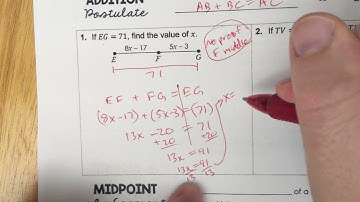 ADDITION
Postulate
AB + BC = AC
1. If EG = 71, find the value of x.
2. If TV =
8x – 17
5x – 3
E
F
G
71
no proof
F middle
EF + FG = EG
(8x-17) + (5x-3) = (71)
13x - 20 = 71
+20 +20
13x = 91
13x = 91
13 13
x=
MIDPOINT
of a